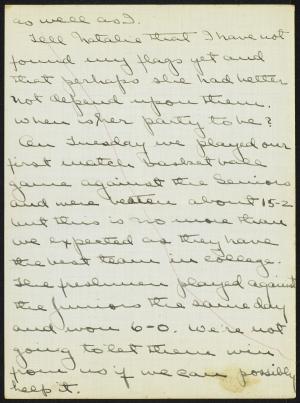 as well as I.
Tell Natalie that I have not
found my flags yet and
that perhaps she had better
not depend upon them.
When is her party to be?
On Tuesday we played our
first match basket ball
game against the Seniors
and were beaten about 15-2
but this is no more than
we expected as they have
the best team in college.
The freshmen played against
the Juniors the same day
and won 6-0. We're not
going to let them win
from us if we can possibly
help it.